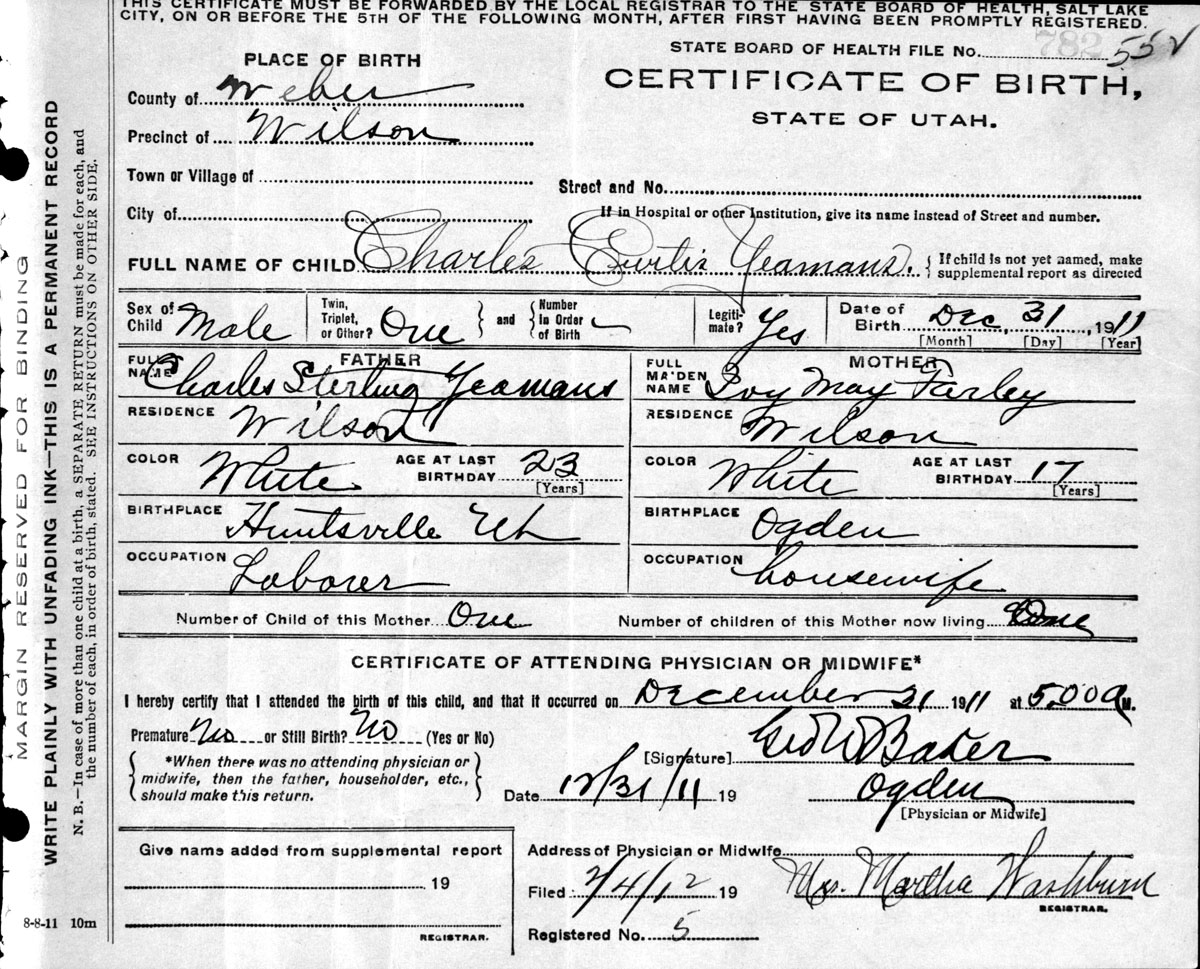 THIS CERTIFICATE MUST BE FORWARDED BY THE LOCAL REGISTRAR TO THE STATE BOARD OF HEALTH, SALT LAKE
CITY, ON OR BEFORE THE 5TH OF THE FOLLOWING MONTH, AFTER FIRST HAVING BEEN PROMPTLY REGISTERED.
STATE BOARD OF HEALTH FILE No. 782 552
PLACE OF BIRTH
CERTIFICATE OF BIRTH,
STATE OF UTAH.
County of Weber
Precinct of Wilson
Town or Village of
Street and No.
City of
If in Hospital or other Institution, give its name instead of Street and number.
FULL NAME OF CHILD Charles Curtis Yeamans. { If child is not yet named, make
supplemental report as directed
Sex of Child Male
Twin, Triplet, or Other? One } and { Number In Order of Birth
Legiti-mate? Yes
Date of Birth Dec, 31, 1911
[Month] [Day] [Year]
FATHER
FULL NAME Charles Sterling Yeamans
RESIDENCE Wilson
COLOR White AGE AT LAST BIRTHDAY 23
[Years]
BIRTHPLACE Huntsville Ut
OCCUPATION Laborer
MOTHER
FULL MAIDEN NAME Ivy May Farley
RESIDENCE Wilson
COLOR White AGE AT LAST BIRTHDAY 17
[Years]
BIRTHPLACE Ogden
OCCUPATION housewife
Number of Child of this Mother One Number of children of this Mother now living One
CERTIFICATE OF ATTENDING PHYSICIAN OR MIDWIFE*
I hereby certify that I attended the birth of this child, and that it occurred on December 31 1911 at 5.00 a M.
Premature No or Still Birth? No (Yes or No)
[Signature] Geo W Baker
{ *When there was no attending physician or
midwife, then the father, householder, etc.,
should make this return. }
Date 12/31/11 19 Ogden
[Physician or Midwife]
Give name added from supplemental report
19
REGISTRAR.
Address of Physician or Midwife
Filed 2/4/12 19 Mrs. Martha Washburn
REGISTRAR.
Registered No. 5
MARGIN RESERVED FOR BINDING
WRITE PLAINLY WITH UNFADING INK—THIS IS A PERMANENT RECORD
N. B.—In case of more than one child at a birth, a SEPARATE RETURN must be made for each, and
the number of each, in order of birth, stated. SEE INSTRUCTIONS ON OTHER SIDE.
8-8-11 10m